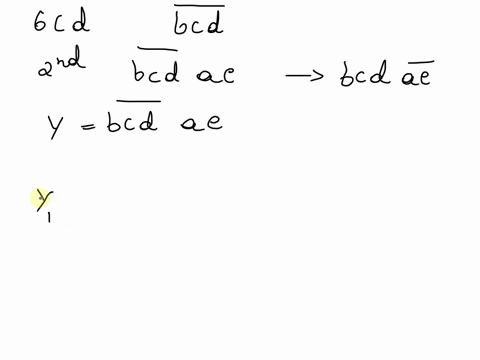 6cd \overline{bcd}
2^{nd} \overline{bcd} ae → bcd \overline{ae}
y = \overline{bcd} ae
y_1